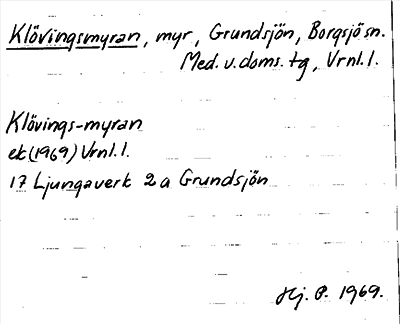 Klövingsmyran, myr, Grundsjön, Borgsjö sn.
Med. v. doms. tg, Vrnl. l.
Klövings-myran
ek (1969) Vrnl. l.
17 Ljungaverk 2a Grundsjön
Hj. P. 1969.